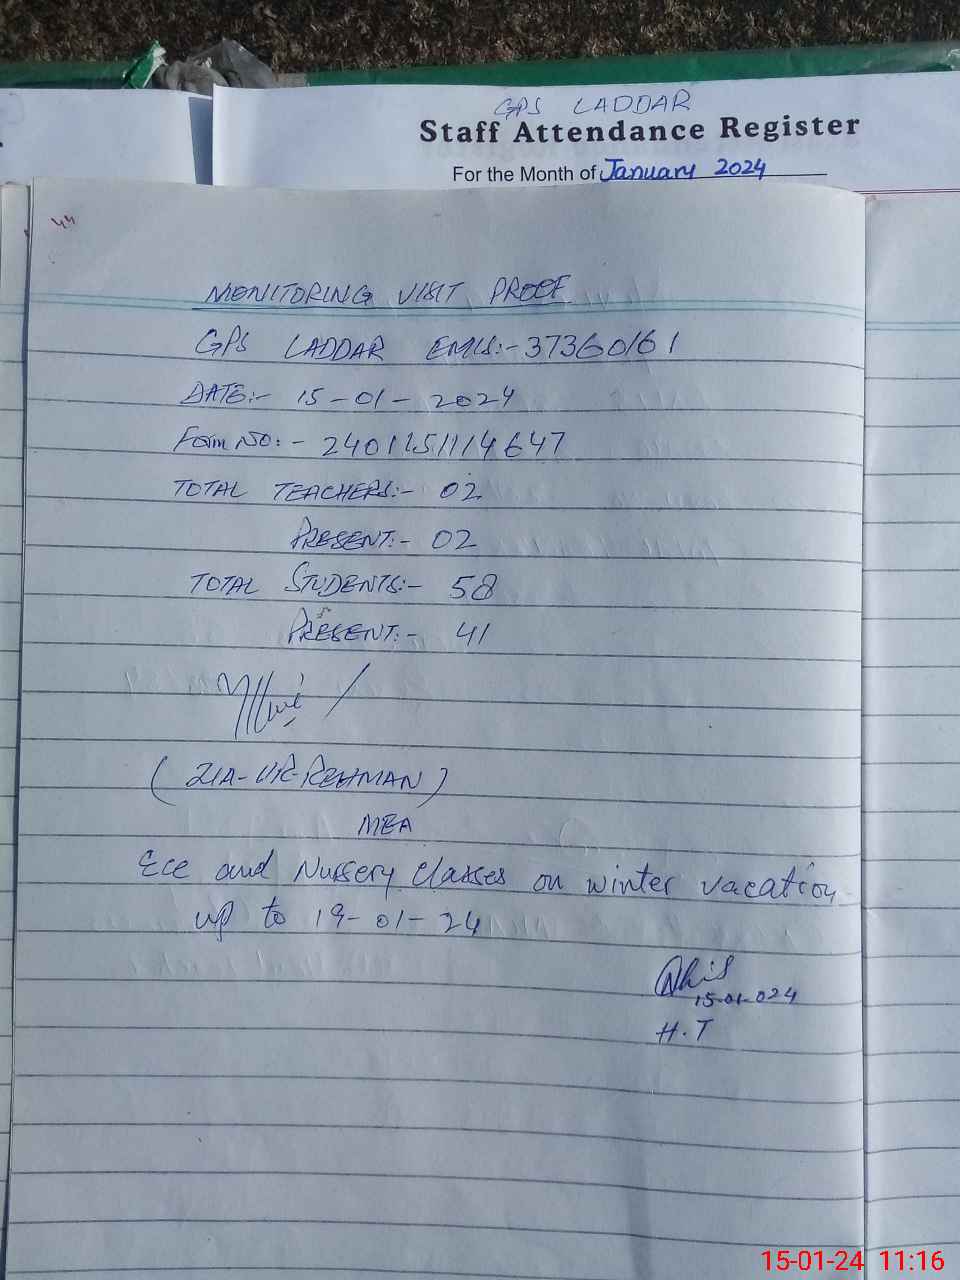 GPS LADDAR
Staff Attendance Register
For the Month of January 2024
44
MONITORING VISIT PROOF
GPS LADDAR EMIS:- 37360161
DATE:- 15-01-2024
Form NO:- 2401151114647
TOTAL TEACHERS:- 02
PRESENT:- 02
TOTAL STUDENTS:- 58
PRESENT:- 41
(ZIA-UR-REHMAN)
MEA
Ece and Nursery classes on winter vacation
up to 19-01-24
15-01-024
H.T
15-01-24 11:16